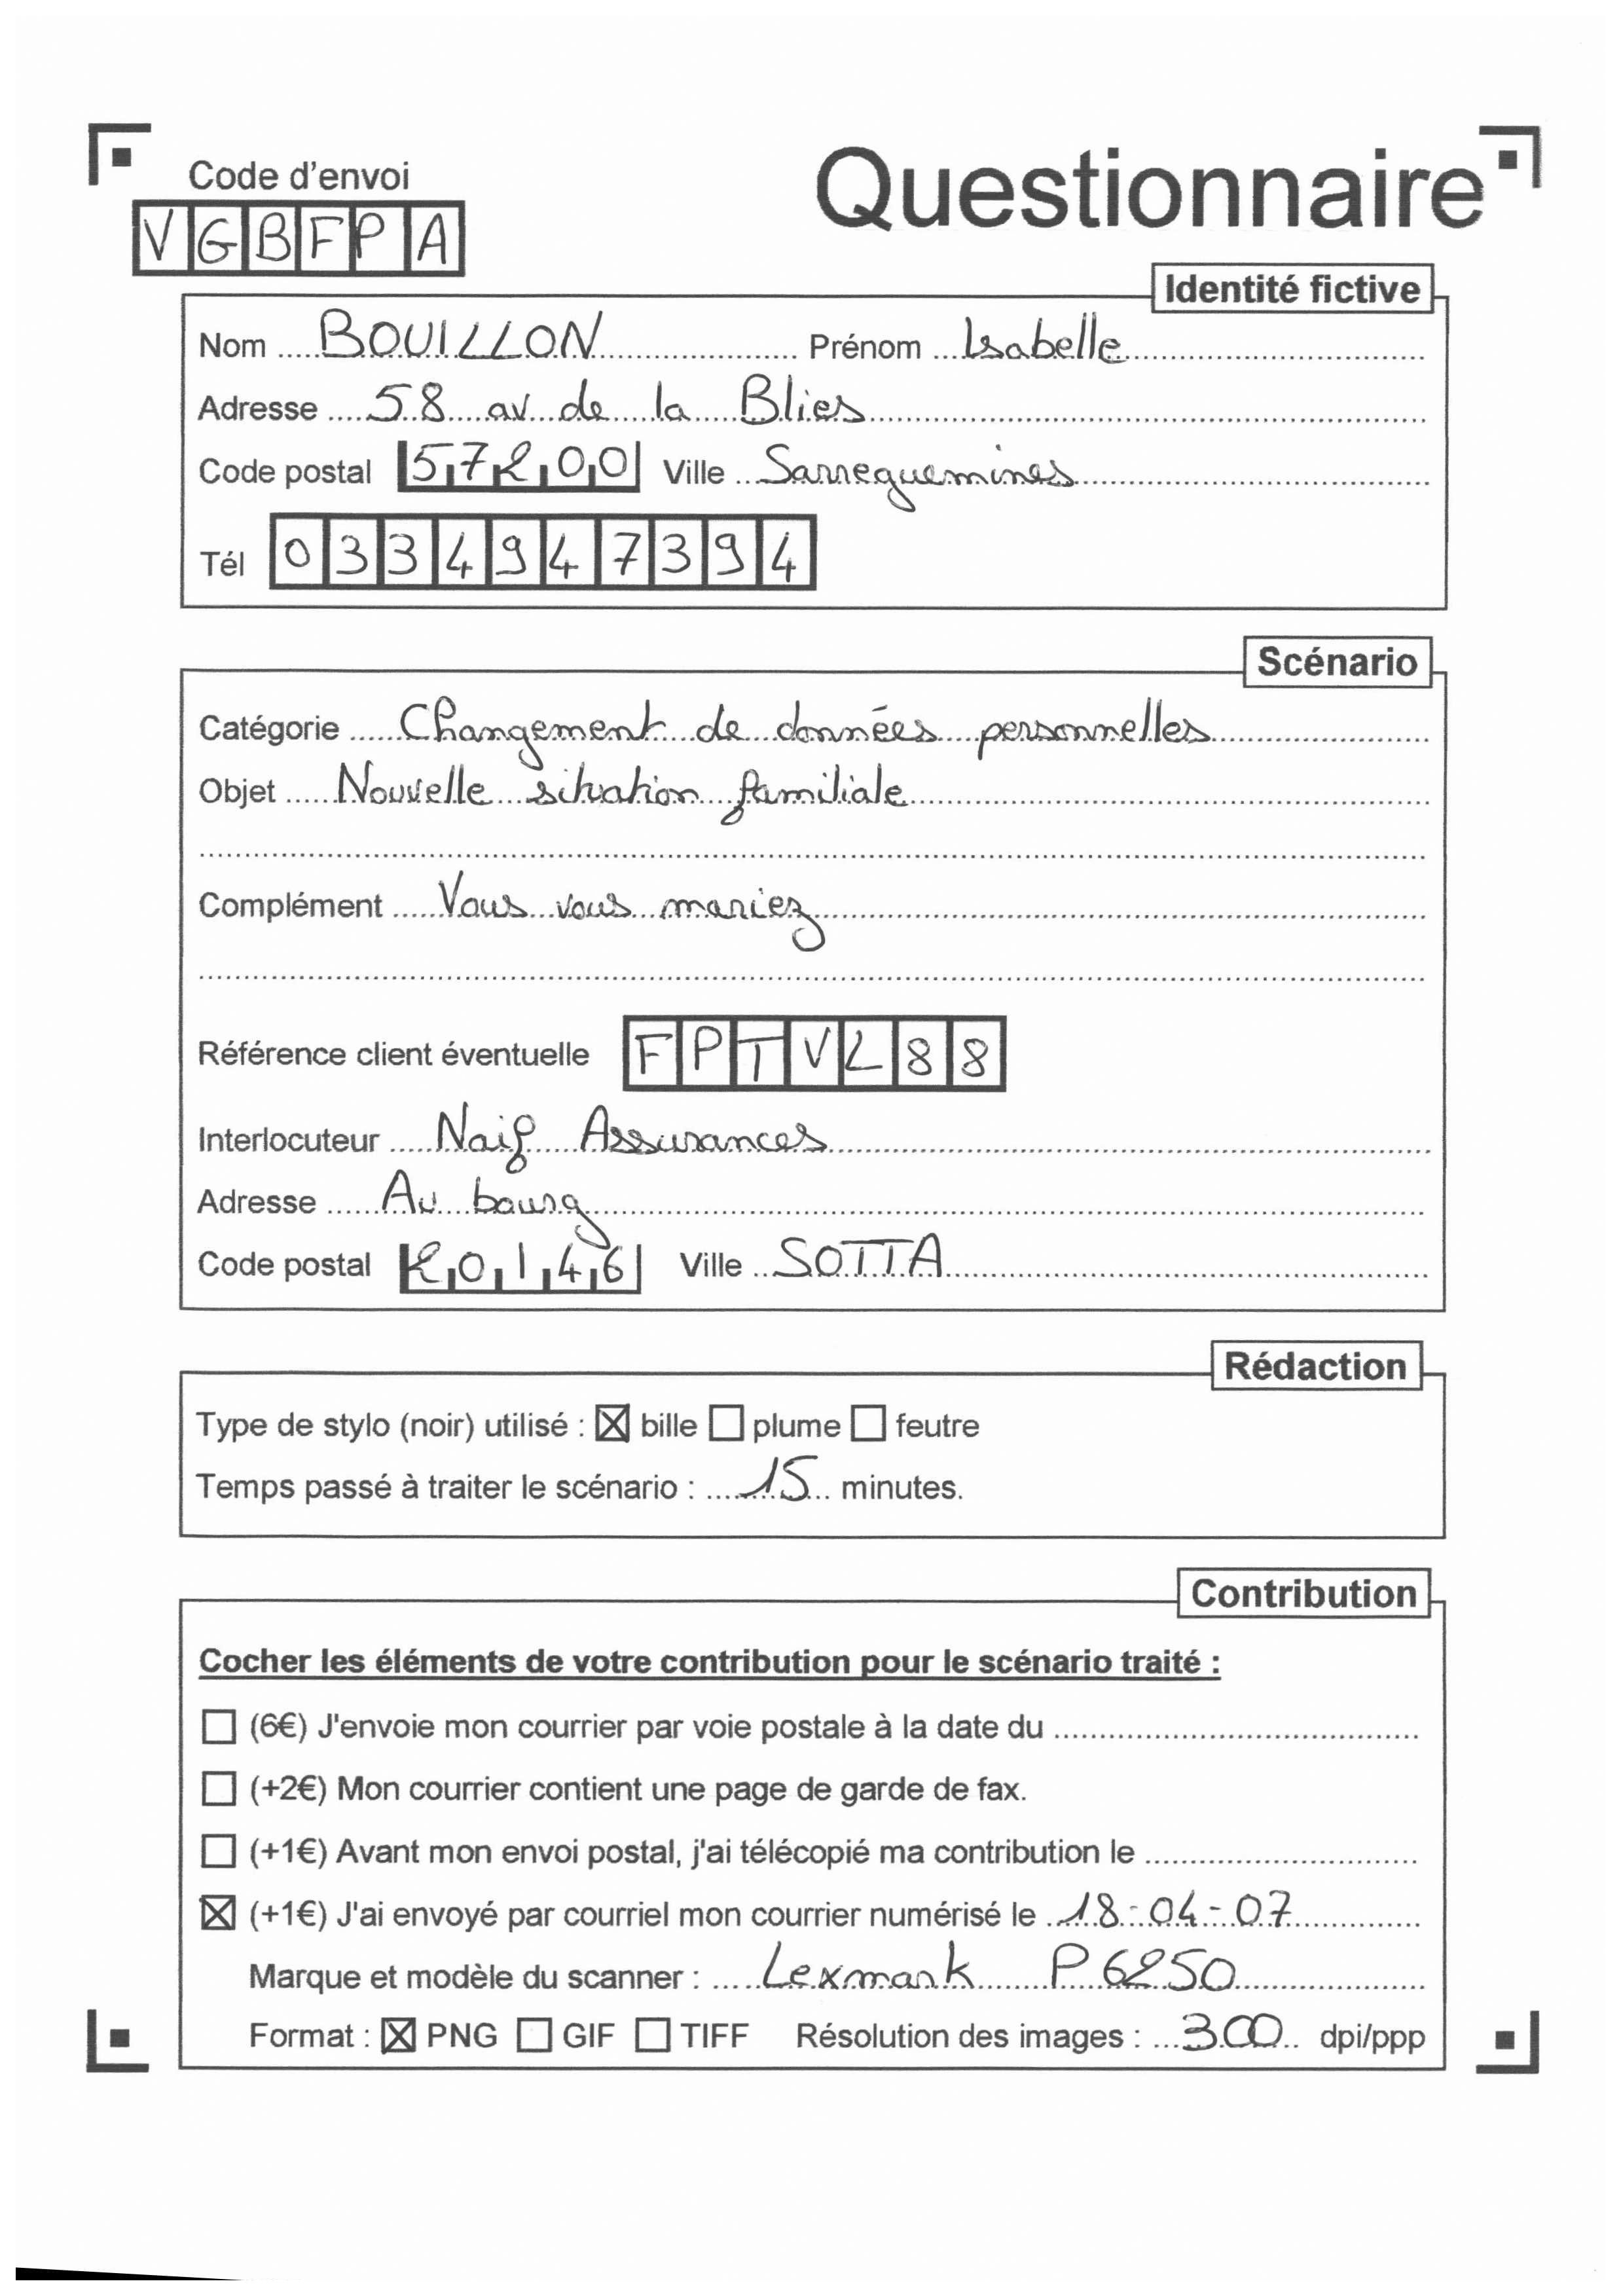 Code d'envoi
Questionnaire
VGBFPA
Identité fictive
Nom BOUILLON Prénom Isabelle
Adresse 58 av de la Blies
Code postal 57200 Ville Sarreguemines
Tél 0334947394
Scénario
Catégorie Changement de données personnelles
Objet Nouvelle situation familiale
Complément Vous vous mariez
Référence client éventuelle FPTVL88
Interlocuteur Naif Assurances
Adresse Au bourg
Code postal 20146 Ville SOTTA
Rédaction
Type de stylo (noir) utilisé : ☒ bille ☐ plume ☐ feutre
Temps passé à traiter le scénario : 15 minutes.
Contribution
Cocher les éléments de votre contribution pour le scénario traité :
☐ (6€) J'envoie mon courrier par voie postale à la date du
☐ (+2€) Mon courrier contient une page de garde de fax.
☐ (+1€) Avant mon envoi postal, j'ai télécopié ma contribution le
☒ (+1€) J'ai envoyé par courriel mon courrier numérisé le 18-04-07
Marque et modèle du scanner : Lexmark P6250
Format : ☒ PNG ☐ GIF ☐ TIFF Résolution des images : 300 dpi/ppp